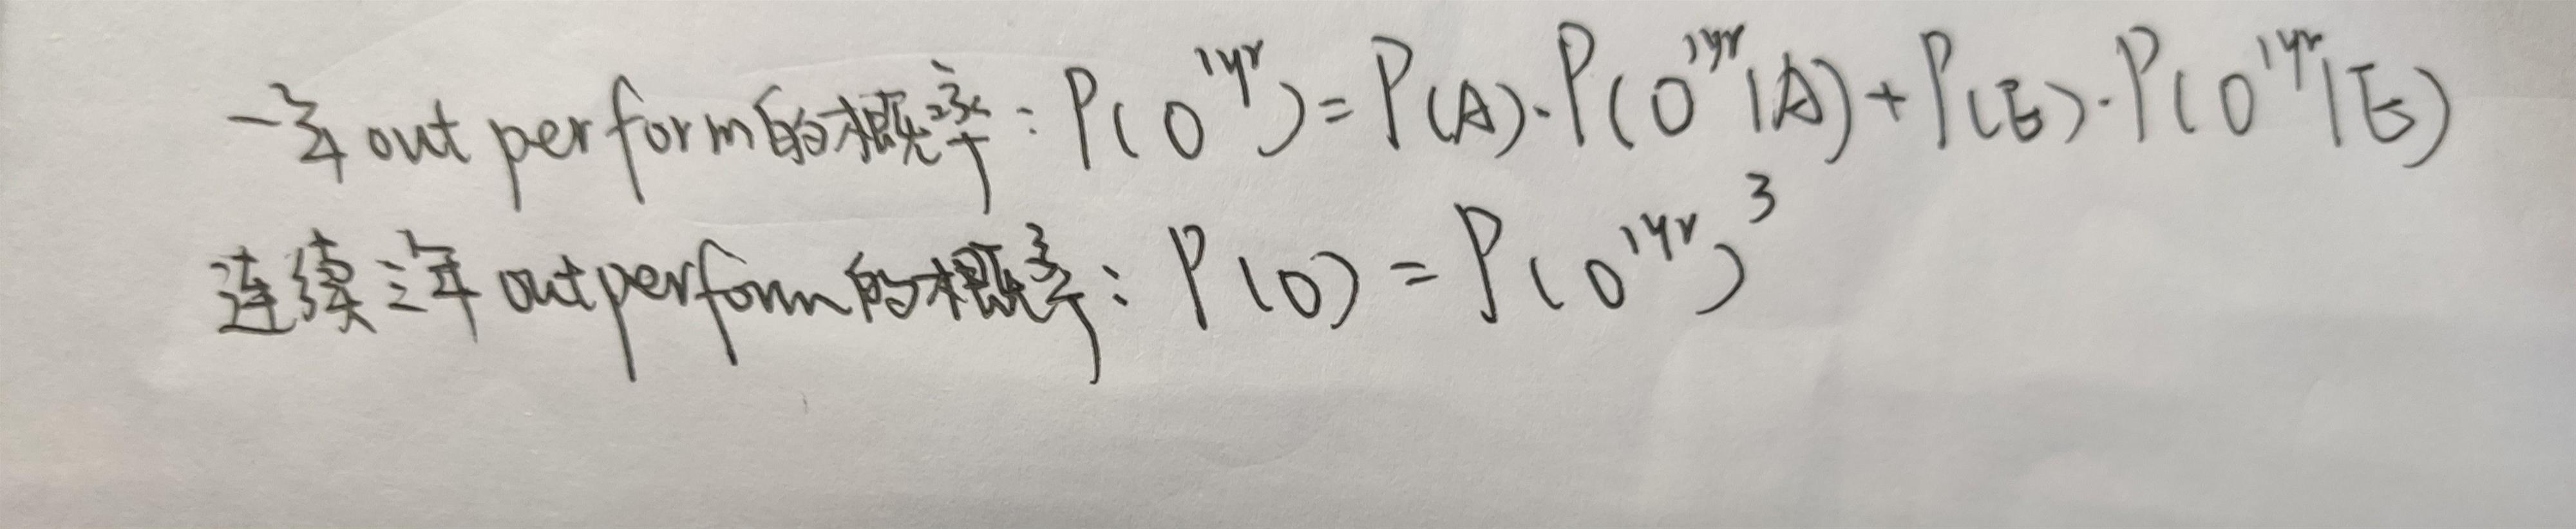 一年outperform的概率：P(O^1yr)=P(A)·P(O^1yr|A)+P(E)·P(O^1yr|E)
连续三年outperform的概率：P(O)=P(O^1yr)^3